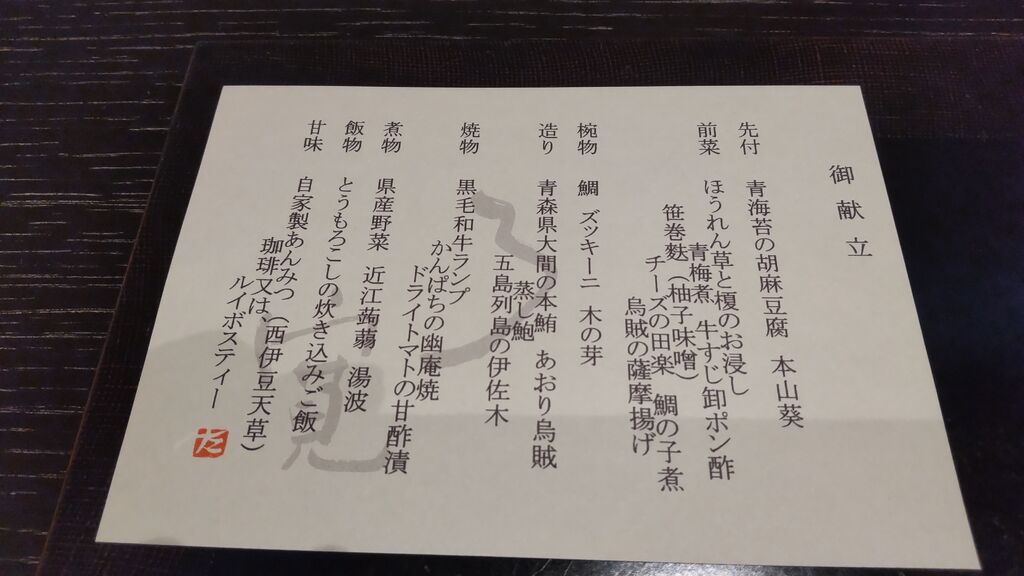 御献立
先付 青海苔の胡麻豆腐 本山葵
前菜 ほうれん草と榎のお浸し
青梅煮 牛すじ卸ポン酢
笹巻麩（柚子味噌）
チーズの田楽 鯛の子煮
烏賊の薩摩揚げ
椀物 鯛 ズッキーニ 木の芽
造り 青森県大間の本鮪 あおり烏賊
蒸し鮑
五島列島の伊佐木
焼物 黒毛和牛ランプ
かんぱちの幽庵焼
ドライトマトの甘酢漬
煮物 県産野菜 近江蒟蒻 湯波
飯物 とうもろこしの炊き込みご飯
甘味 自家製あんみつ（西伊豆天草）
珈琲又は、
ルイボスティー